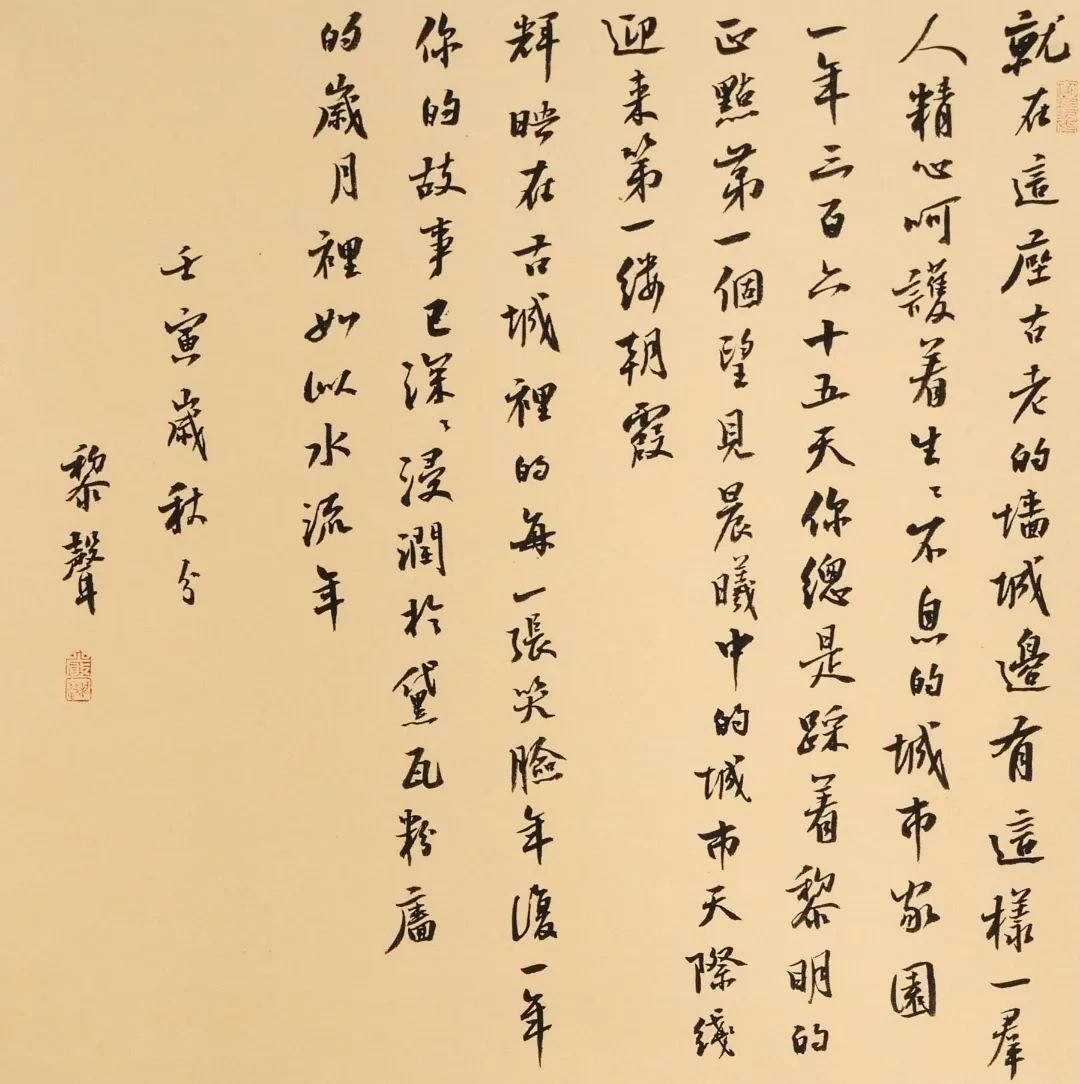 就在這座古老的墻城邊有這樣一羣
人精心呵護着生〻不息的城市家園
一年三百六十五天你總是踩着黎明的
正點第一個望見晨曦中的城市天際綫
迎来第一缕朝霞
輝映在古城裡的每一張笑臉年復一年
你的故事已深〻浸潤於黛瓦粉牆
的歲月裡如似水流年
壬寅歲秋分
黎聲